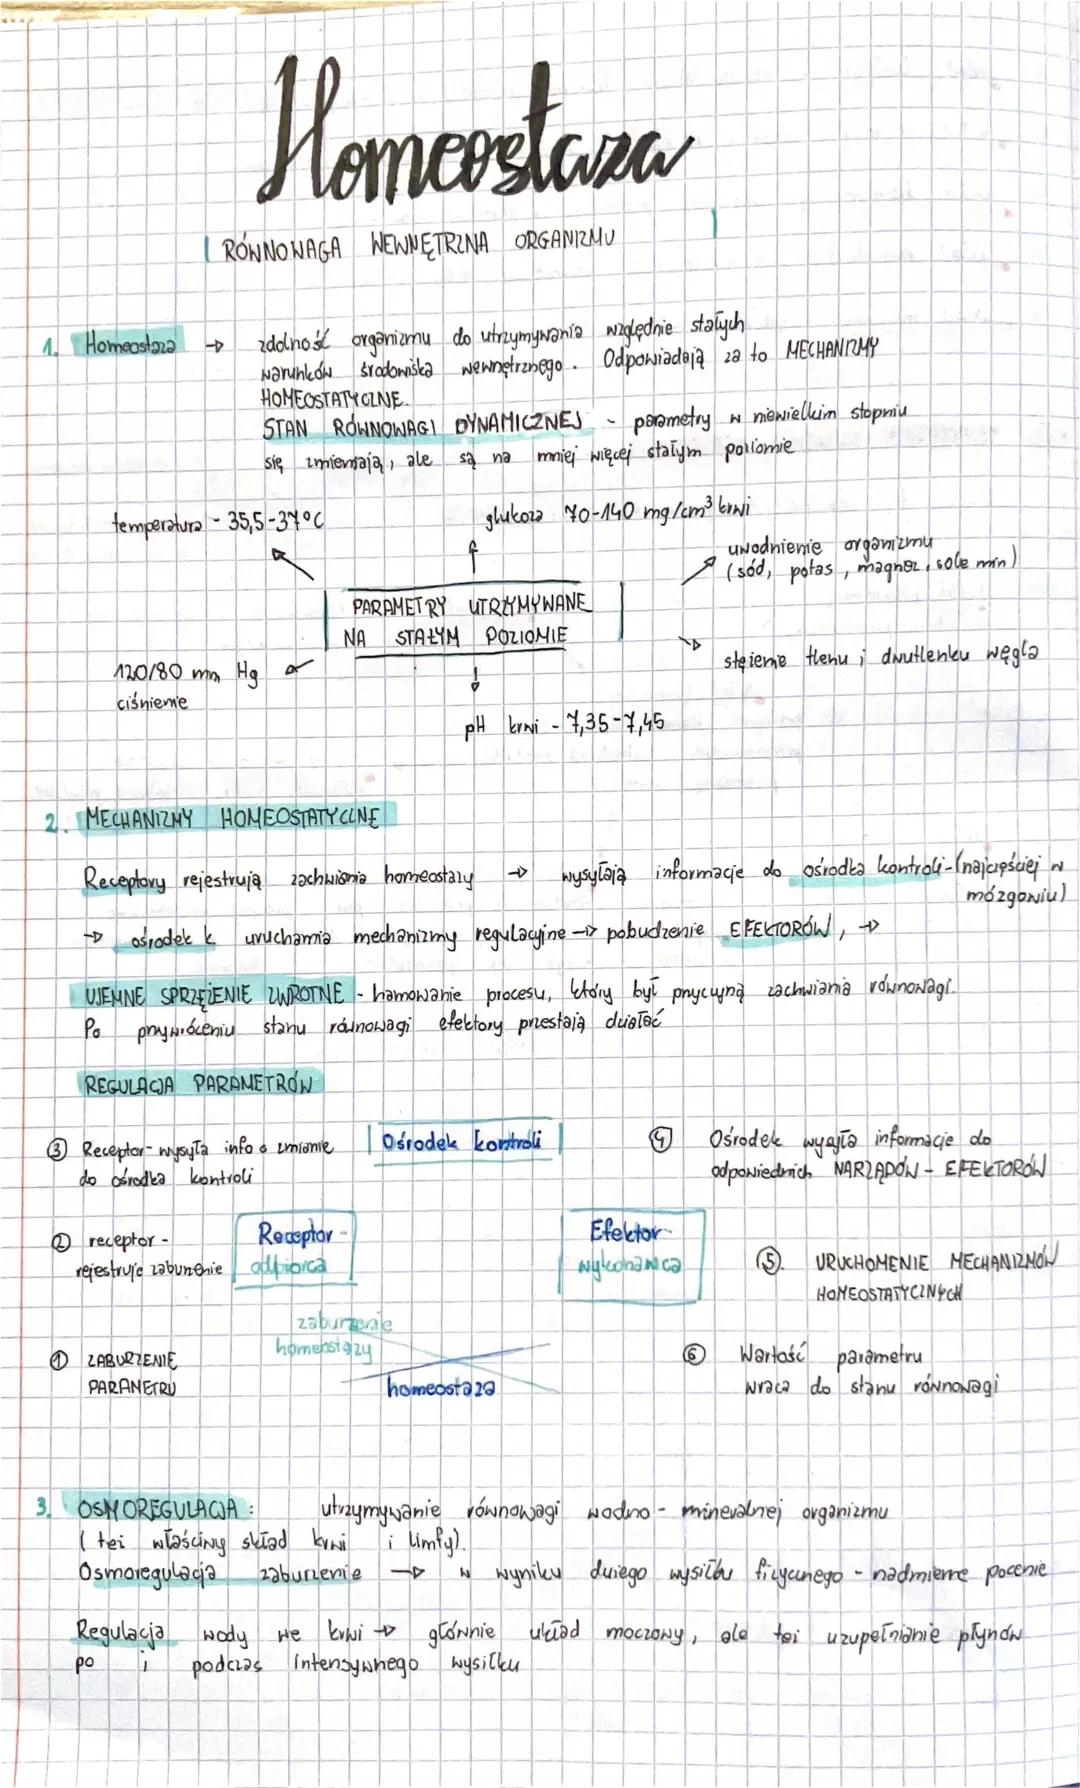 Homeostaza
RÓWNOWAGA WEWNĘTRZNA ORGANIZMU
1. Homeostaza → zdolność organizmu do utrzymywania względnie stałych
warunków środowiska wewnętrznego. Odpowiadają za to MECHANIZMY
HOMEOSTATYCZNE.
STAN RÓWNOWAGI DYNAMICZNEJ - parametry w niewielkim stopniu
się zmieniają, ale są na mniej więcej stałym poziomie
temperatura - 35,5-37°C
glukoza 70-140 mg/cm³ krwi
uwodnienie organizmu
(sód, potas, magnez, sole min)
PARAMETRY UTRZYMYWANE
NA STAŁYM POZIOMIE
120/80 mm Hg
ciśnienie
stężenie tlenu i dwutlenku węgla
pH krwi - 7,35-7,45
2. MECHANIZMY HOMEOSTATYCZNE
Receptory rejestrują zachwiania homeostazy → wysyłają informacje do ośrodka kontroli-(najczęściej w
mózgowiu)
→ ośrodek k. uruchamia mechanizmy regulacyjne → pobudzenie EFEKTORÓW, →
UJEMNE SPRZĘŻENIE ZWROTNE - hamowanie procesu, który był przyczyną zachwiania równowagi.
Po przywróceniu stanu równowagi efektory przestają działać
REGULACJA PARAMETRÓW
③ Receptor- wysyła info o zmianie
do ośrodka kontroli
Ośrodek kontroli
④ Ośrodek wysyła informacje do
odpowiednich NARZĄDÓW - EFEKTORÓW
② receptor -
rejestruje zaburzenie
Receptor -
odbiorca
Efektor-
wykonawca
⑤. URUCHOMENIE MECHANIZMÓW
HOMEOSTATYCZNYCH
zaburzenie
homeostazy
① ZABURZENIE
PARAMETRU
homeostaza
⑥ Wartość parametru
wraca do stanu równowagi
3. OSMOREGULACJA: utrzymywanie równowagi wodno - mineralnej organizmu
(też właściwy skład krwi i limfy).
Osmoregulacja zaburzenie → w wyniku dużego wysiłku fizycznego - nadmierne pocenie
Regulacja wody we krwi → głównie układ moczowy, ale też uzupełnianie płynów
po i podczas intensywnego wysiłku